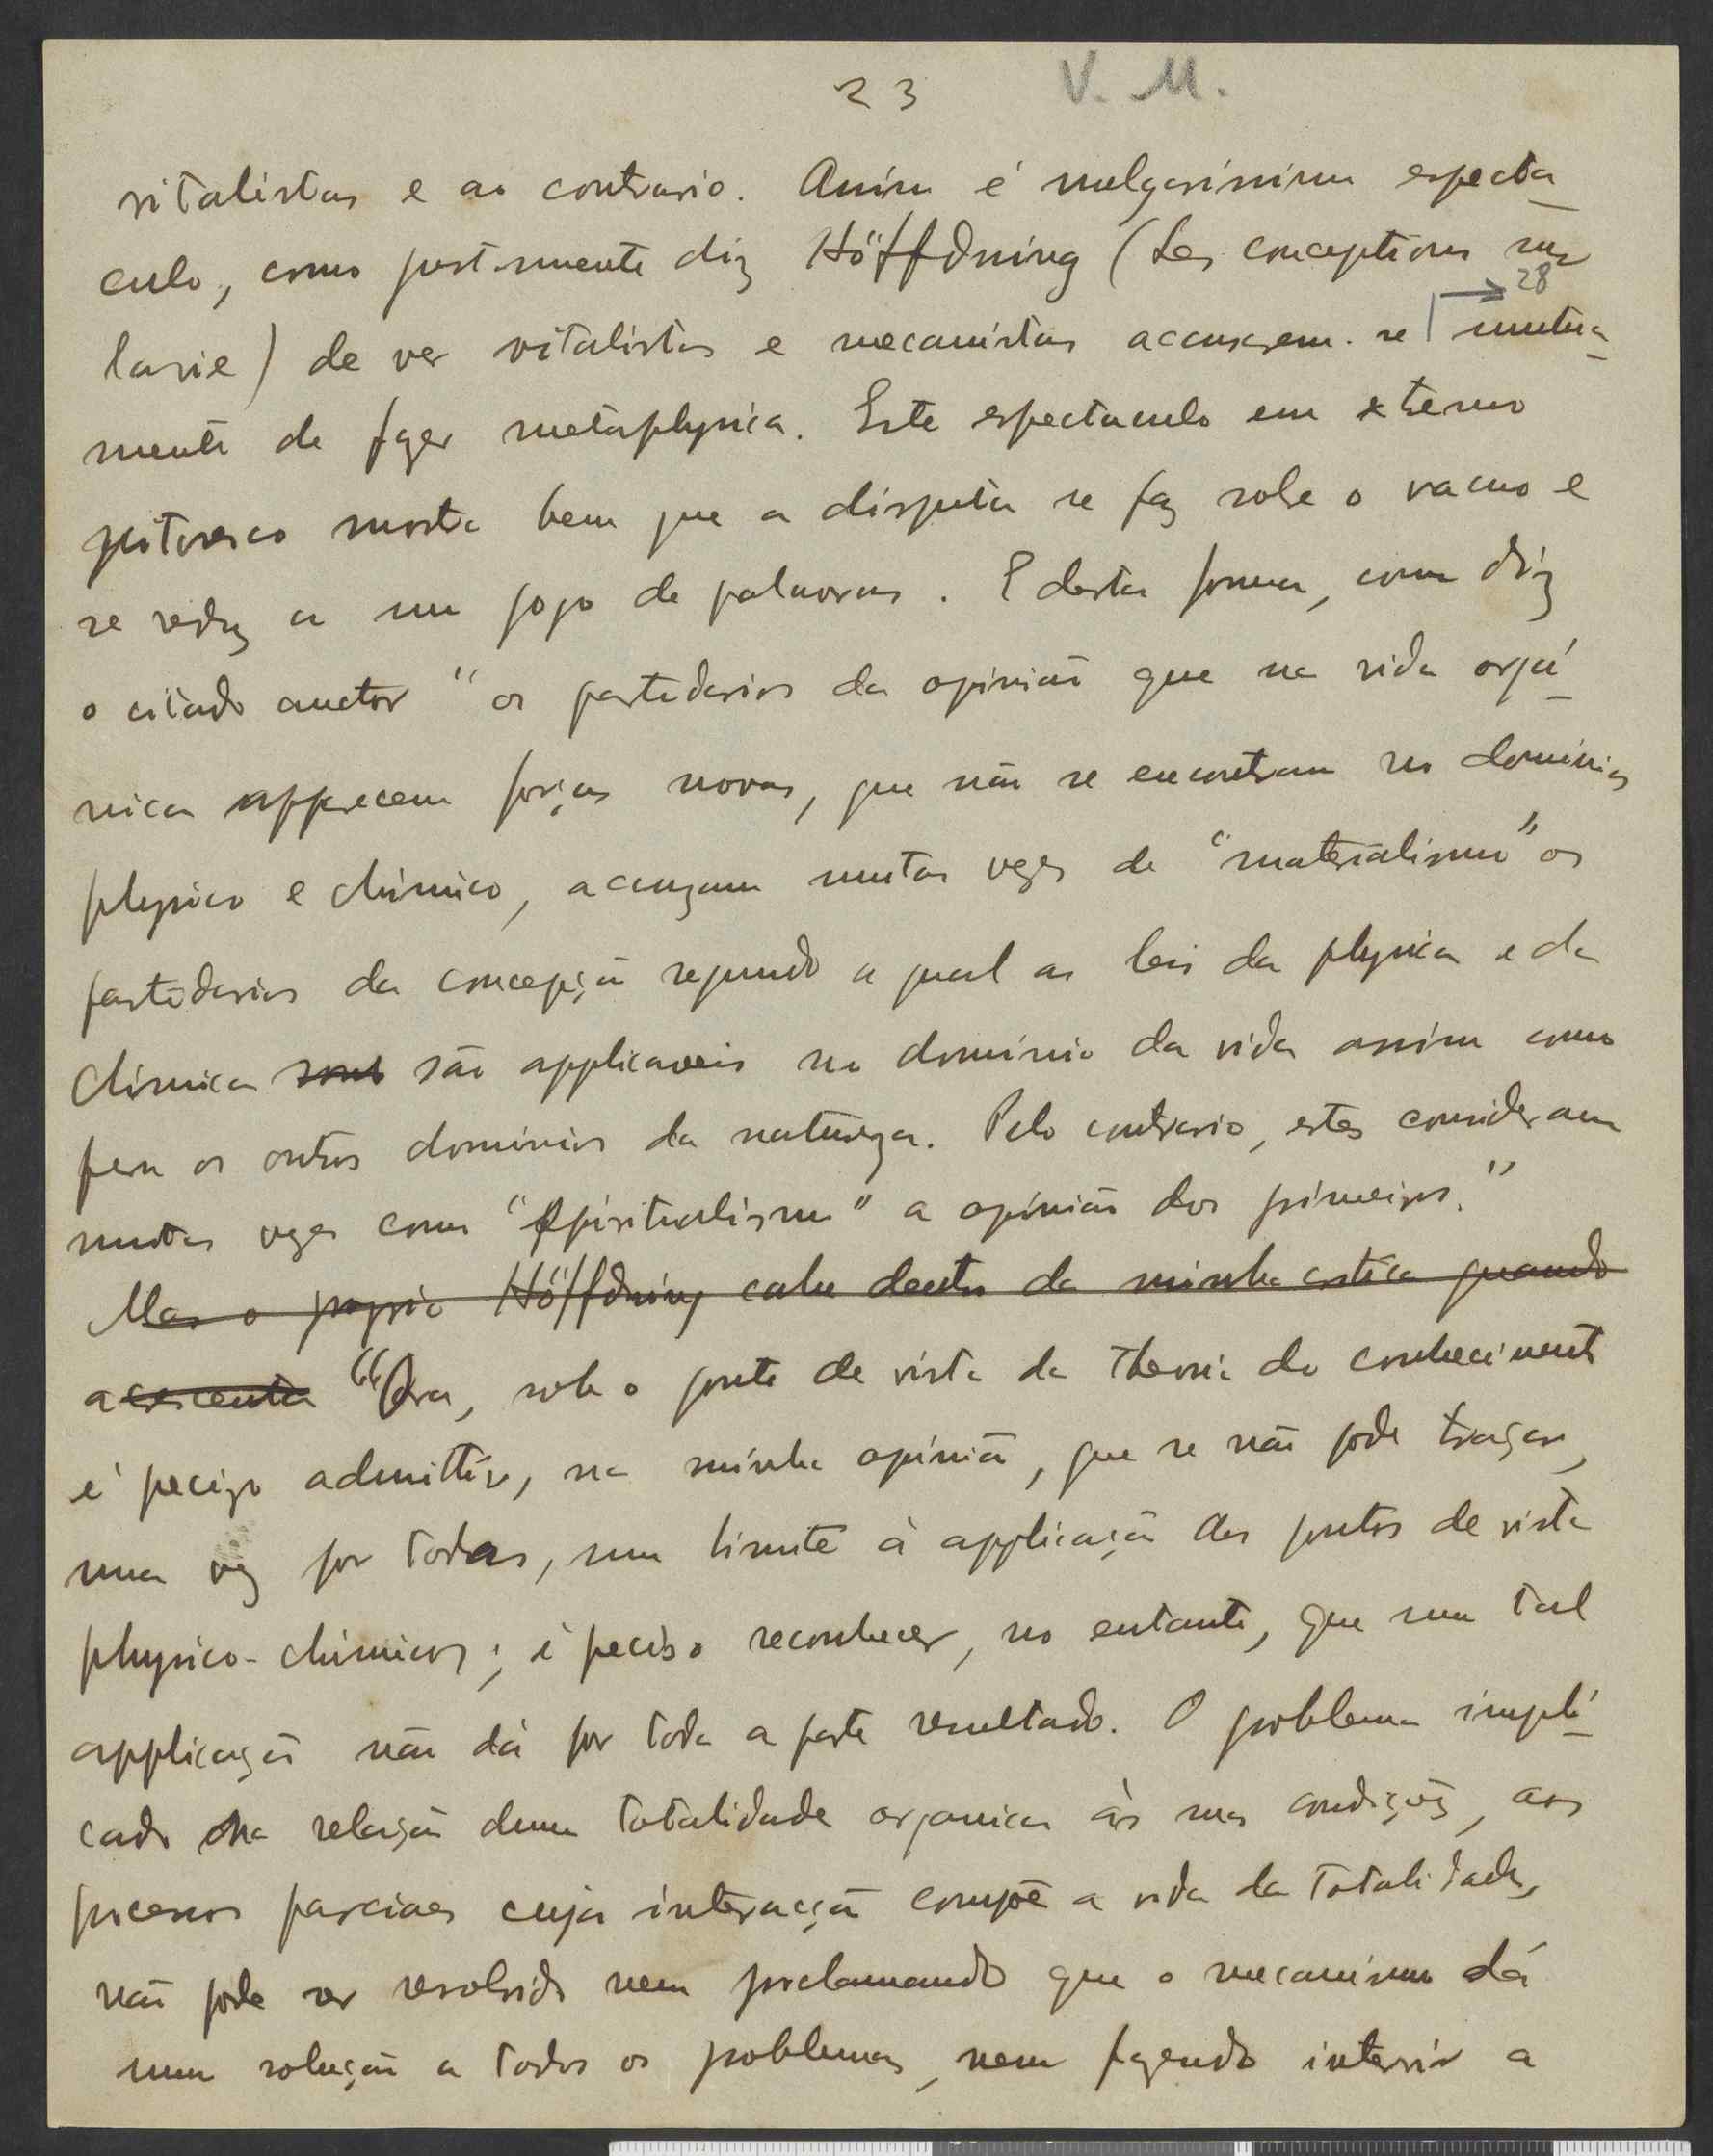 23 V. M.
vitalistas e ao contrario. Assim é vulgarissimo especta-
culo, como justamente diz Höffdning (Les conceptions sur
la vie) de ver vitalistas e mecanistas accusarem-se mutua-
28
mente de fazer metaphysica. Este espectaculo em extremo
pitoresco mostra bem que a disputa se faz sobre o vacuo e
se reduz a um jogo de palavras. E desta forma, como diz
o citado auctor "os partidarios da opinião que na vida orgá-
nica apparecem forças novas, que não se encontram no dominio
physico e chimico, accuzam muitas vezes de "materialismo" os
partidarios da concepção segundo a qual as leis da physica e da
chimica sont são applicaveis no dominio da vida assim como
para os outros dominios da natureza. Pelo contrario, estes consideram
muitas vezes como "spiritualismo" a opinião dos primeiros."
Mas o proprio Höffdning cahe dentro da minha critica quando
acrescenta "Ora, sob o ponto de vista da theoria do conhecimento
é precizo admittir, na minha opinião, que se não pode traçar,
uma vez por todas, um limite á applicação dos pontos de vista
physico-chimicos; é preciso reconhecer, no entanto, que um tal
applicação não dá por toda a parte resultado. O problema impli-
cado na relação duma totalidade organica ás suas condições, aos
processos parciaes cuja interacção compõe a vida da totalidade,
não pode ser resolvido nem proclamando que o mecanismo dá
uma solução a todos os problemas, nem fazendo intervir a